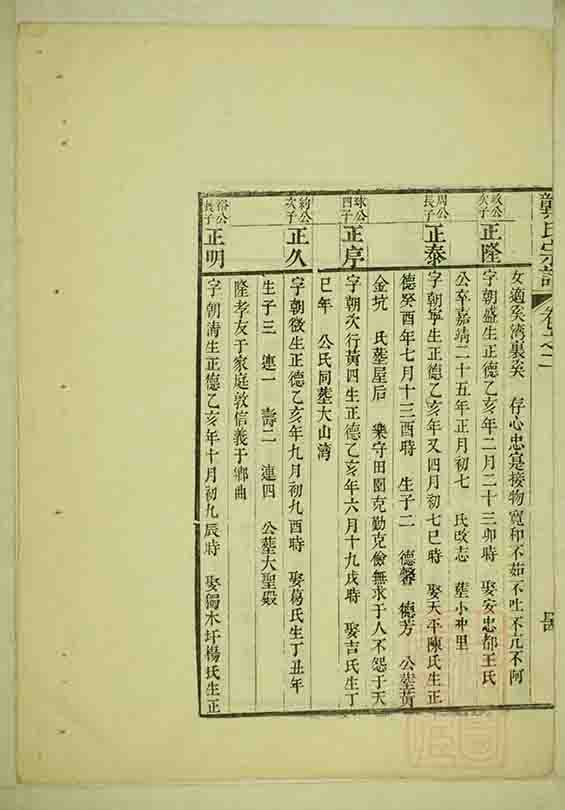 氏宗譜 卷之二
女適奚灣襲奚 存心忠是接物寬和不茹不吐不亢不阿
政公次子 正隆 字朝盛生正德乙亥年二月二十三卯時 娶安忠都王氏
公卒嘉靖二十五年正月初七 氏改志 塟小冲里
周公長子 正泰 字朝寧生正德乙亥年又四月初七巳時 娶天平陳氏生正
德癸酉年七月十三酉時 生子二 德馨 德芳 公塟黃
金坑 氏塟屋后 樂守田園克勤克儉無求于人不怨于天
球公四子 正序 字朝次行黃四生正德乙亥年六月十九戌時 娶吉氏生丁
巳年 公氏同塟大山湾
約公次子 正久 字朝徵生正德乙亥年九月初九酉時 娶葛氏生丁丑年
生子三 連一 壽二 連四 公塟大聖殿
隆孝友于家庭敦信義于鄉曲
裕公長子 正明 字朝清生正德乙亥年十月初九辰時 娶獨木圩楊氏生正